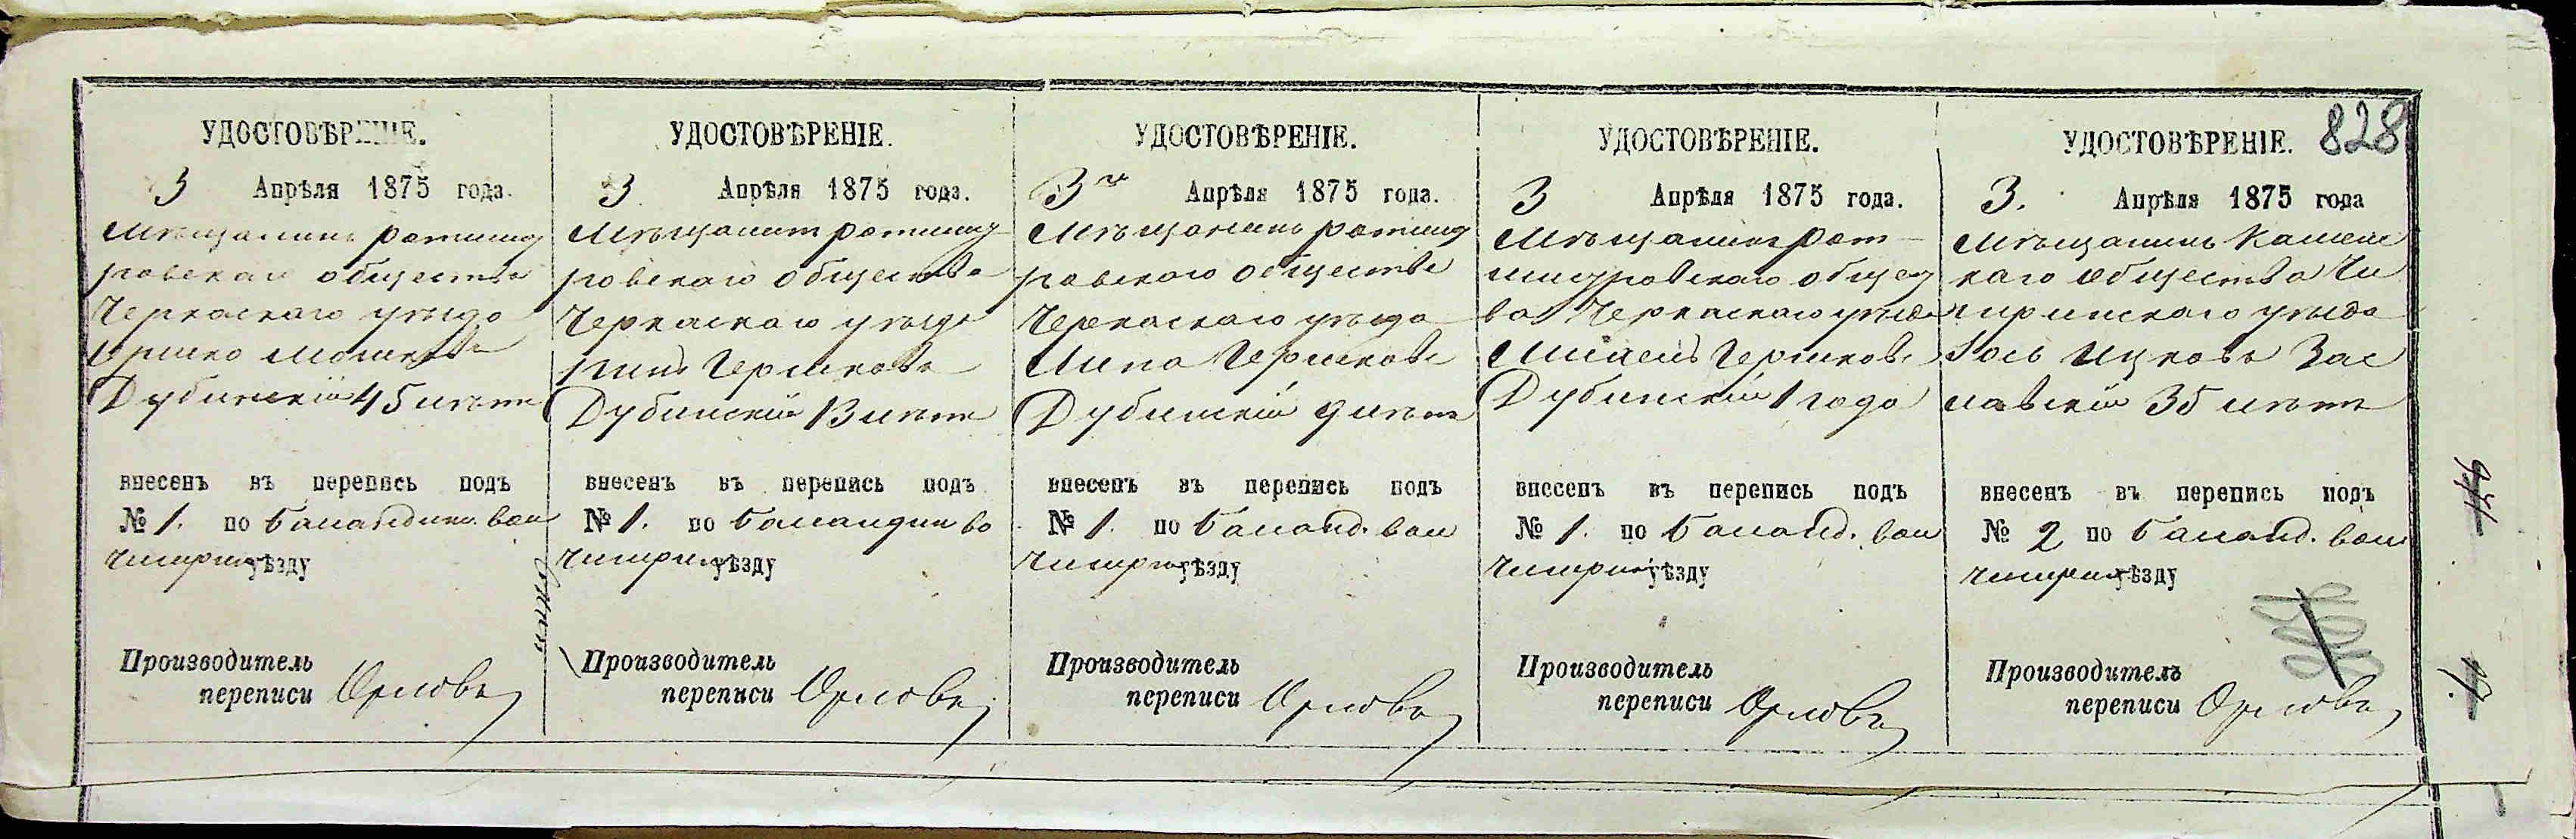 828
УДОСТОВѢРЕНІЕ.
3 Апрѣля 1875 года.
Мѣщанинъ ротмищ
ровскаго общества
Черкаскаго уѣзда
Гершко Мошковъ
Дубинскій 45 лѣтъ
внесенъ въ перепись подъ
№ 1. по Баландин. вол
Чигрин уѣзду
Производитель
переписи Орловъ
УДОСТОВѢРЕНІЕ.
3 Апрѣля 1875 года.
Мѣщанинъ ротмищ
ровскаго общества
Черкаскаго уѣзда
Гершковъ
Дубинскій 13 лѣтъ
внесенъ въ перепись подъ
№ 1. по Баландин во
Чигрин уѣзду
Производитель
переписи Орловъ
УДОСТОВѢРЕНІЕ.
3го Апрѣля 1875 года.
Мѣщанинъ ротмищ
ровскаго общества
Черкаскаго уѣзда
Липа Гершковъ
Дубинскій 9 лѣтъ
внесенъ въ перепись подъ
№ 1. по Баланд. вол
Чигрин уѣзду
Производитель
переписи Орловъ
УДОСТОВѢРЕНІЕ.
3 Апрѣля 1875 года.
Мѣщанинъ рот-
мищровскаго общест
ва Черкаскаго уѣзда
Гершковъ
Дубинскій 1 года
внесенъ въ перепись подъ
№ 1. по Баланд. вол
Чигрин уѣзду
Производитель
переписи Орловъ
УДОСТОВѢРЕНІЕ.
3. Апрѣля 1875 года
Мѣщанинъ Каменс
каго общества Чи
гиринскаго уѣзда
Іось Ицковъ Зас
лавскій 35 лѣтъ
внесенъ въ перепись подъ
№ 2 по Баланд. вол
Чигрин уѣзду
Производитель
переписи Орловъ